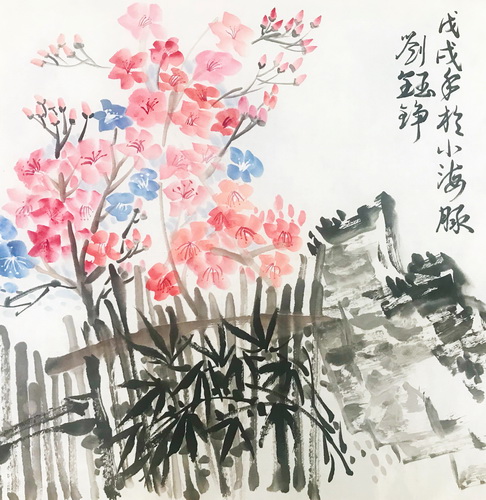 戊戌年於小海豚
劉鈺錚